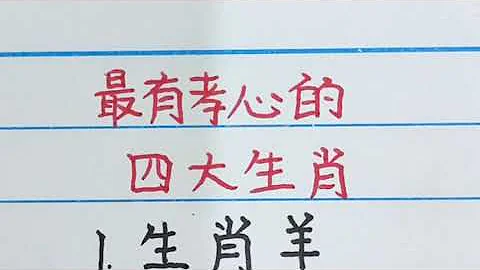 最有孝心的
四大生肖
1.生肖羊